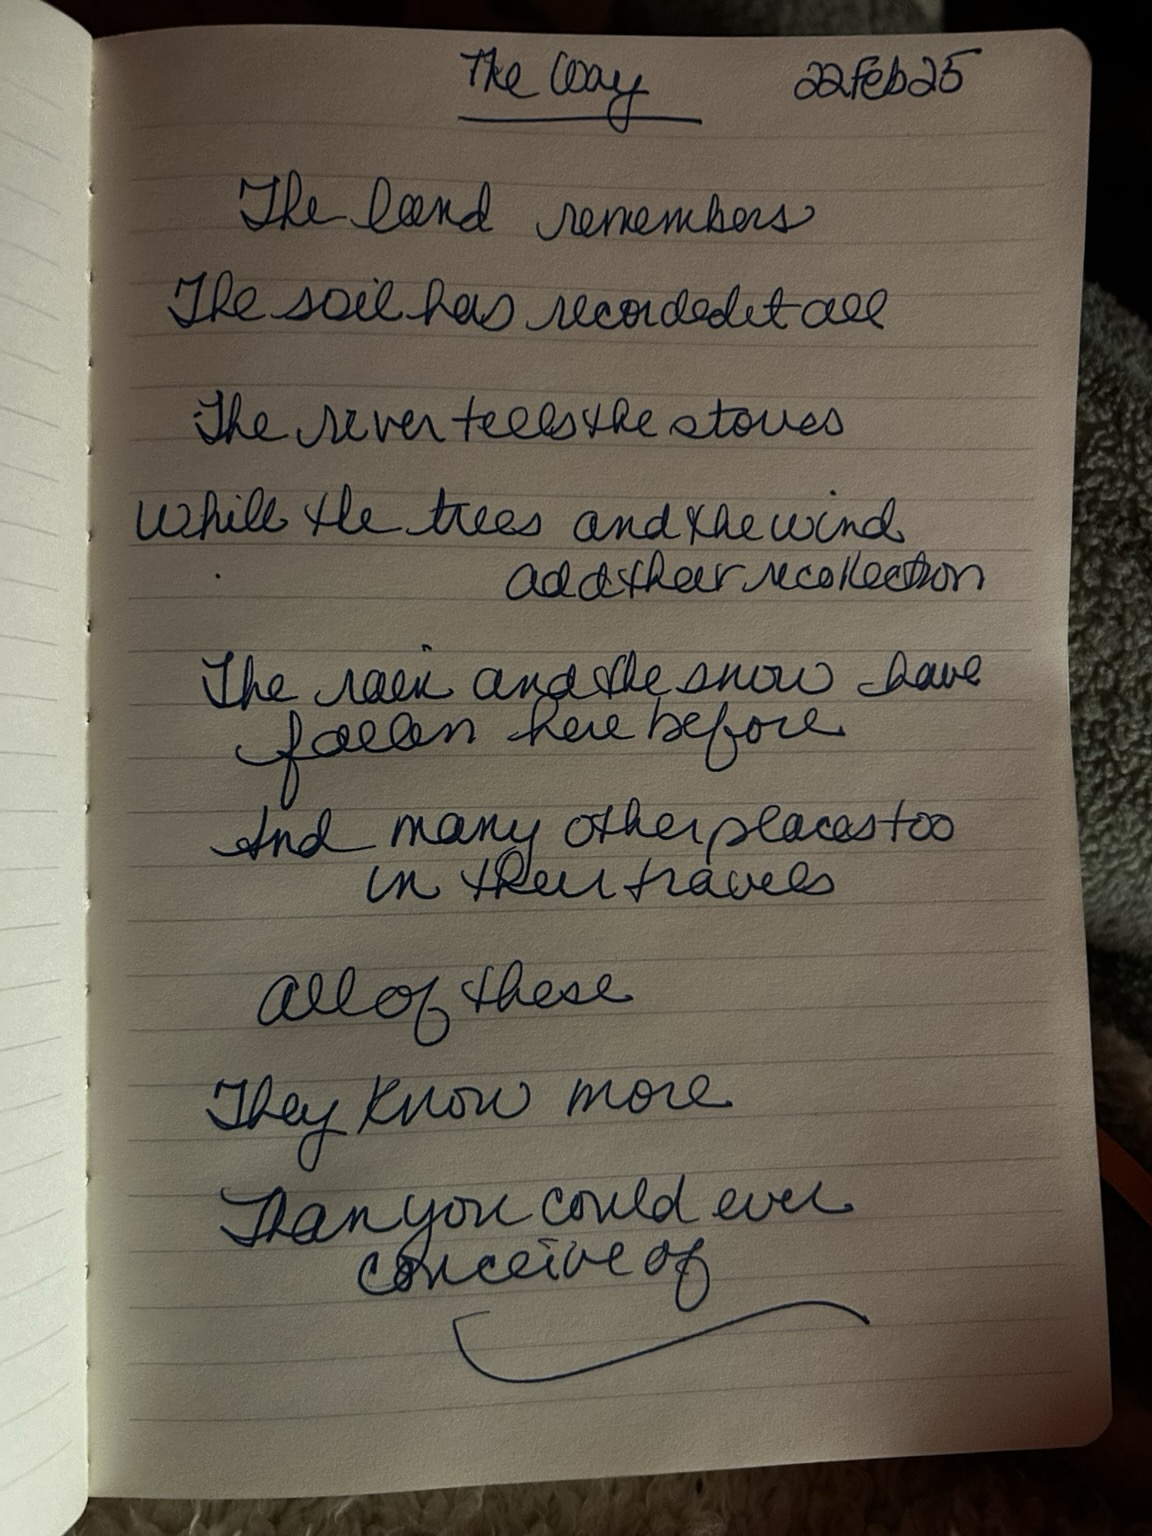 The Way 22Feb25
The land remembers
The soil has recorded it all
The river tells the stories
While the trees and the wind
add their recollection
The rain and the snow have
fallen here before
And many other places too
in their travels
All of these
They know more
Than you could ever
conceive of